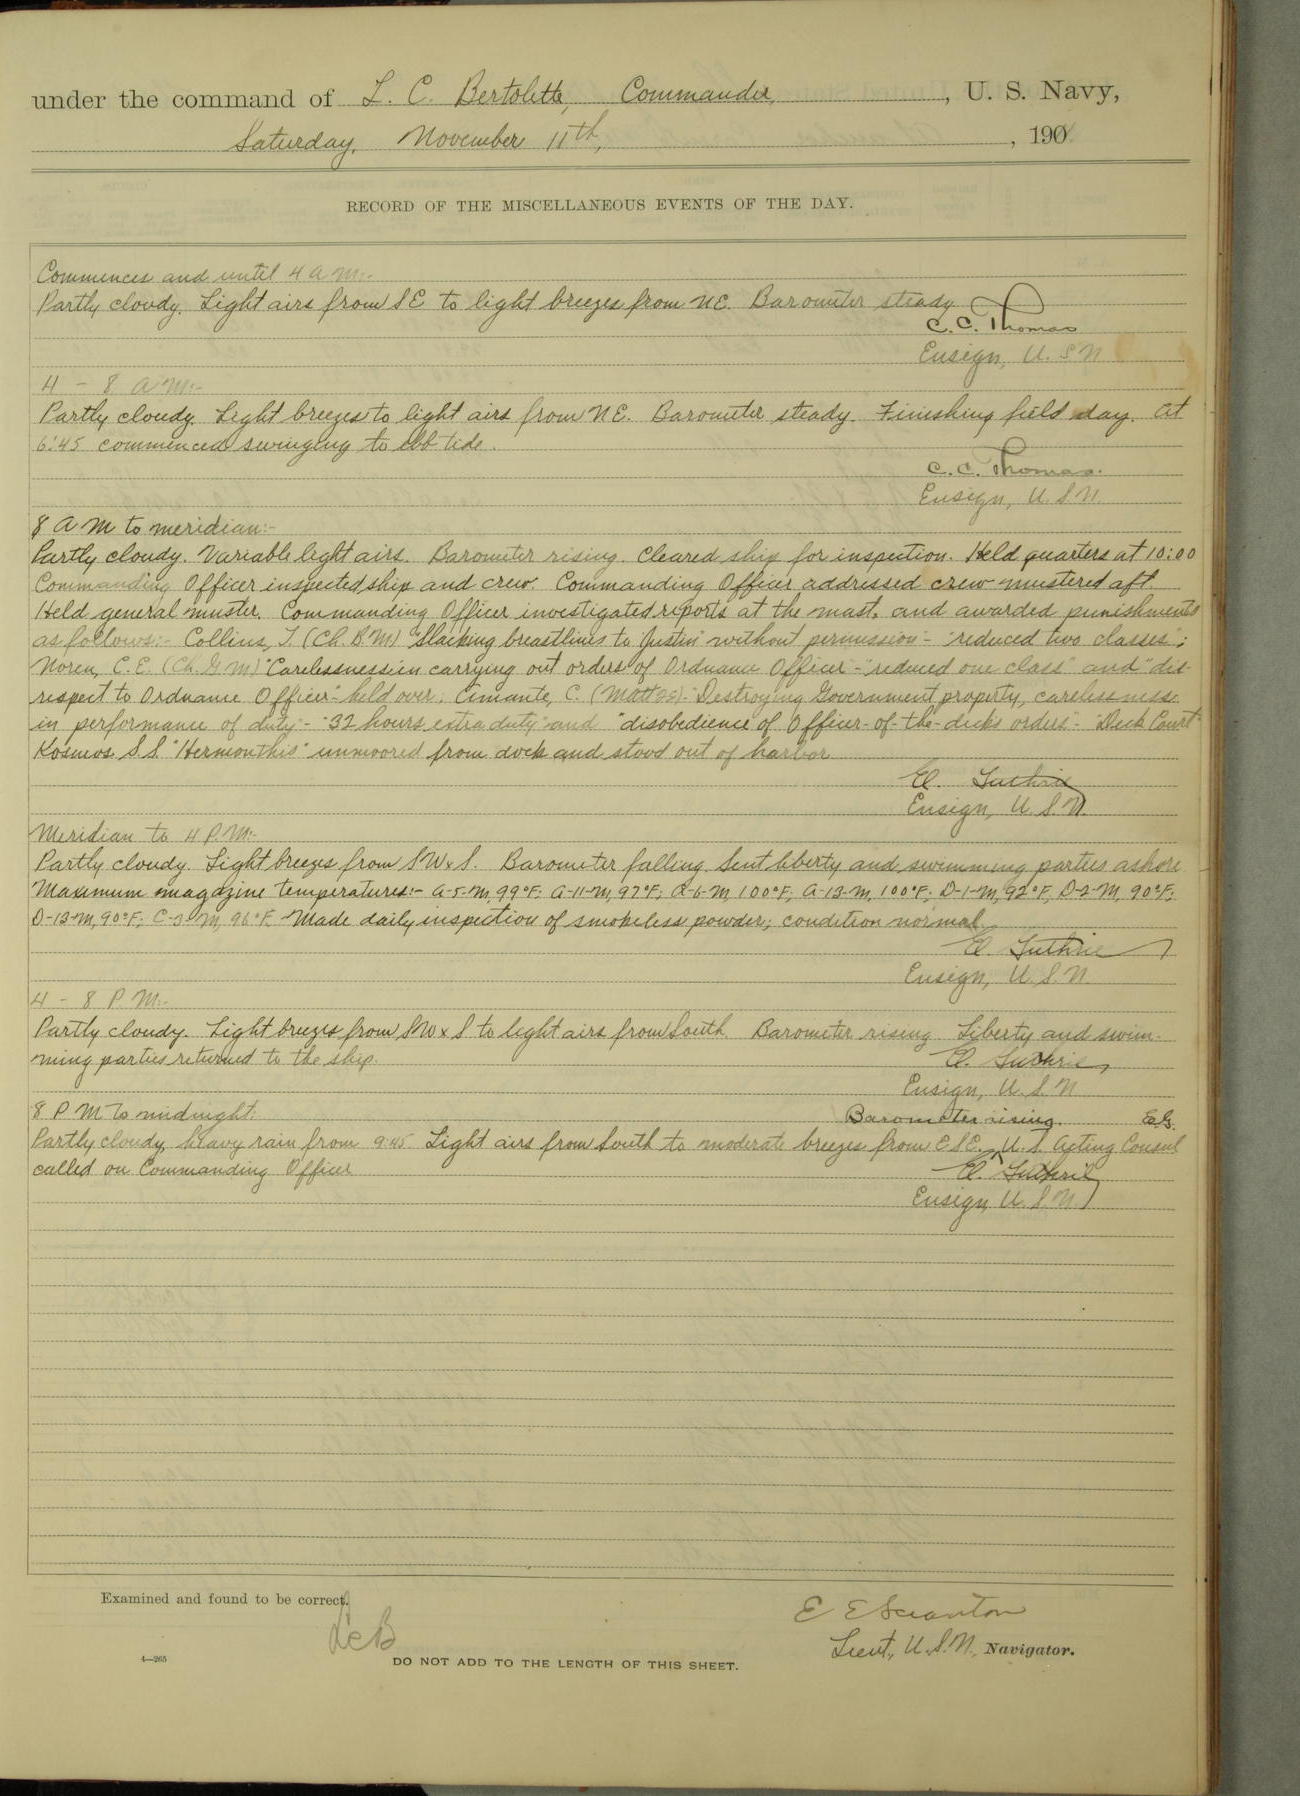 under the command of L. C. Bertolette, Commander, , U. S. Navy,
Saturday, November 11th, , 190
RECORD OF THE MISCELLANEOUS EVENTS OF THE DAY.
Commences and until 4 A M:-
Partly cloudy. Light airs from SE to light breezes from NE. Barometer steady
C. C. Thomas
Ensign, U. S N
4 - 8 A M:-
Partly cloudy. Light breezes to light airs from NE. Barometer steady. Finishing field day. At
6:45 commenced swinging to ebb tide.
C. C. Thomas.
Ensign, U. S N.
8 A M to meridian:-
Partly cloudy. Variable light airs. Barometer rising. Cleared ship for inspection. Held quarters at 10:00
Commanding Officer inspected ship and crew. Commanding Officer addressed crew mustered aft.
Held general muster. Commanding Officer investigated reports at the mast, and awarded punishments
as follows:- Collins, T. (Ch. B M) "Slacking breastlines to 'Justin' without permission"- "reduced two classes";
Noren, C. E. (Ch. G M) "Carelessness in carrying out orders of Ordnance Officer"-"reduced one class" and "dis-
respect to Ordnance Officer"- held over; Cimante, C. (Matt 2c) "Destroying Government property, carelessness
in performance of duty"- "32 hours extra duty" and "disobedience of Officer-of-the-deck's orders"- "Deck Court"
Kosmos S. S. "Hermonthis" unmoored from dock and stood out of harbor
E. Guthrie
Ensign, U. S. N.
Meridian to 4 P. M:-
Partly cloudy. Light breezes from SW x S. Barometer falling. Sent liberty and swimming parties ashore
Maximum magazine temperatures:- A-5-M, 99°F; A-11-M, 97°F; A-6-M, 100°F; A-13-M, 100°F; D-1-M, 92°F, D-2-M, 90°F;
D-12-M, 90°F; C-3-M, 96°F. Made daily inspection of smokeless powder; condition normal.
E. Guthrie
Ensign, U. S. N.
4 - 8 P. M:-
Partly cloudy. Light breezes from SW x S to light airs from South. Barometer rising Liberty and swim-
ming parties returned to the ship.
E. Guthrie,
Ensign, U. S. N
8 P M to midnight:
Barometer rising. E.G.
Partly cloudy, heavy rain from 9:45 Light airs from South to moderate breezes from E S E. ^ U. S. Acting Consul
called on Commanding Officer
E. Guthrie
Ensign, U. S. N
Examined and found to be correct.
LCB
E E Scranton
Lieut., U. S. N., Navigator.
4—265
DO NOT ADD TO THE LENGTH OF THIS SHEET.